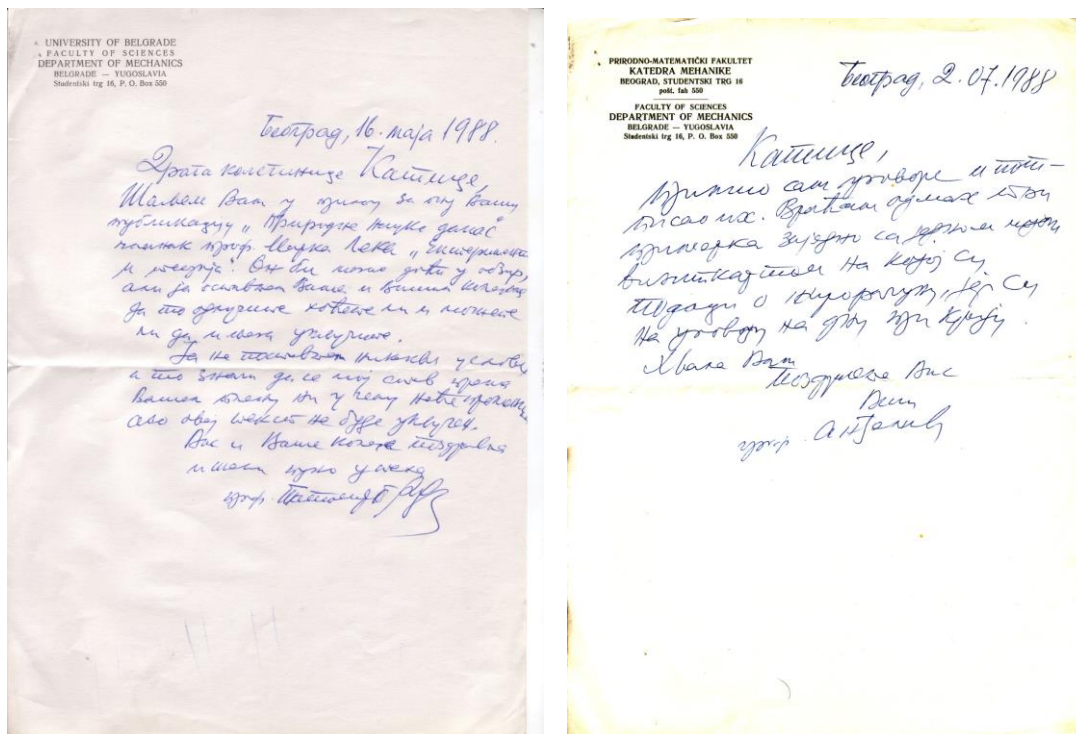 UNIVERSITY OF BELGRADE
FACULTY OF SCIENCES
DEPARTMENT OF MECHANICS
BELGRADE — YUGOSLAVIA
Studentski trg 16, P. O. Box 550
Београд, 16. маја 1988.
Драга колегинице Катице,
Шаљем Вам у прилогу за ону Вашу
публикацију „Природне науке данас"
чланак проф. Марка Лека „Експеримент
и теорија". Он би могао доћи у обзир,
али ја остављам Вама и Вашим колегама
да то одлучите хоћете ли и можете
ли да и њега укључите.
Ја не постављам никакве услове
и то значи да се мој став према
Вашем неће променити
ако овај текст не буде укључен.
Вас и Ваше колеге поздравља
и жели пуно успеха
проф.
PRIRODNO-MATEMATIČKI FAKULTET
KATEDRA MEHANIKE
BEOGRAD, STUDENTSKI TRG 16
pošt. fah 550
FACULTY OF SCIENCES
DEPARTMENT OF MECHANICS
BELGRADE — YUGOSLAVIA
Studentski trg 16, P. O. Box 550
Београд, 2.07.1988
Катице,
Примио сам уговоре и пот-
писао их. Враћам одмах
примерка заједно са једном мојом
визиткартом на којој су
подаци о жирорачуну, јер су
на уговору на дну при крају.
Хвала Вам
Поздравља Вас
Ваш
проф. Анђелић